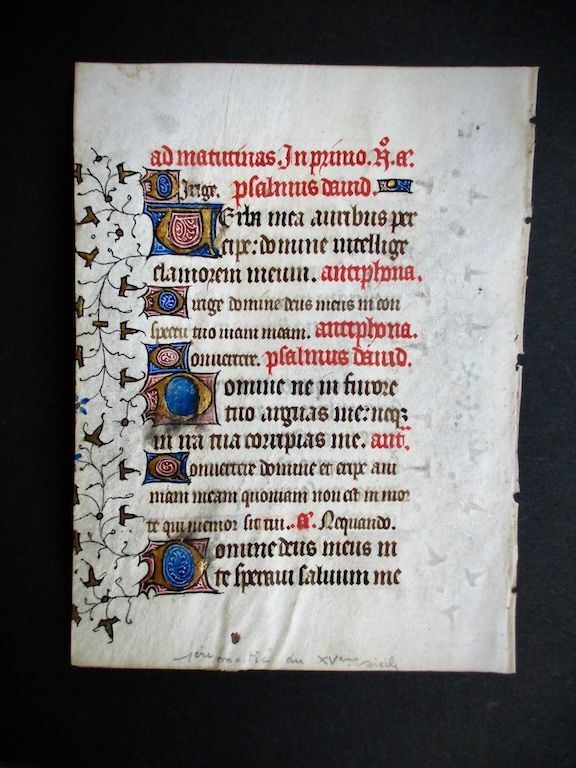 ad matutinas. In primo. R̊. a̅.
Dirige. psalmus david.
Verba mea auribus per
cipe: domine intellige
clamorem meum. antiphona.
Dirige domine deus meus in con
spectu tuo viam meam. antiphona.
Convertere. psalmus david.
Domine ne in furore
tuo arguas me: neqz
in ira tua corripias me. ant.
Convertere domine et eripe ani
mam meam quoniam non est in mor
te qui memor sit tui. a̅. Nequando.
Domine deus meus in
te speravi salvum me
1ère moitié du XVème siècle